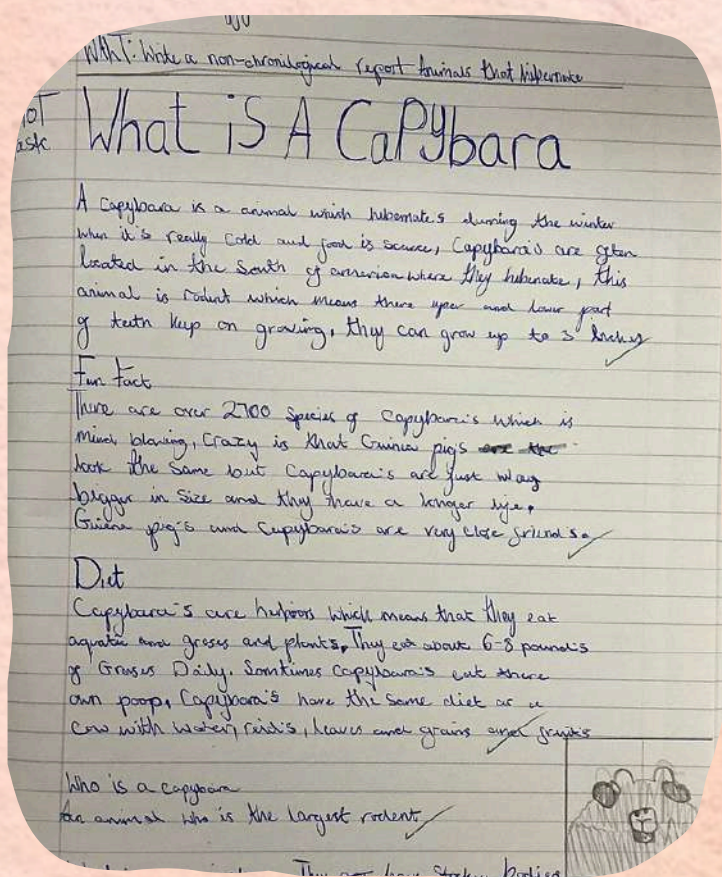 WALT: Write a non-chronilogical report Animals that hibernate
What iS A CaPYbara
A Capybara is a animal which hibernate's durning the winter
when it's really cold and food is scarce, Capybara's are often
located in the South of america where they hibernate, this
animal is rodint which means there uper and lower part
of teeth keep on growing, they can grow up to 3 Inches
Fun Fact
There are over 2700 Species of Capybara's which is
mind blowing, Crazy is that Guinea pigs
look the same but Capybara's are just way
bigger in size and they have a longer life.
pig's and Capybara's are very close friend's.
Diet
Capybara's are which means that they eat
aquatic and and plants, They eat about 6-8 pound's
of Daily. Somtimes Capybara's eat there
own poop, Capybara's have the same diet as a
Cow with water, leaves and grains and fruits
Who is a capybara
An animal who is the largest rodent
They have bodies